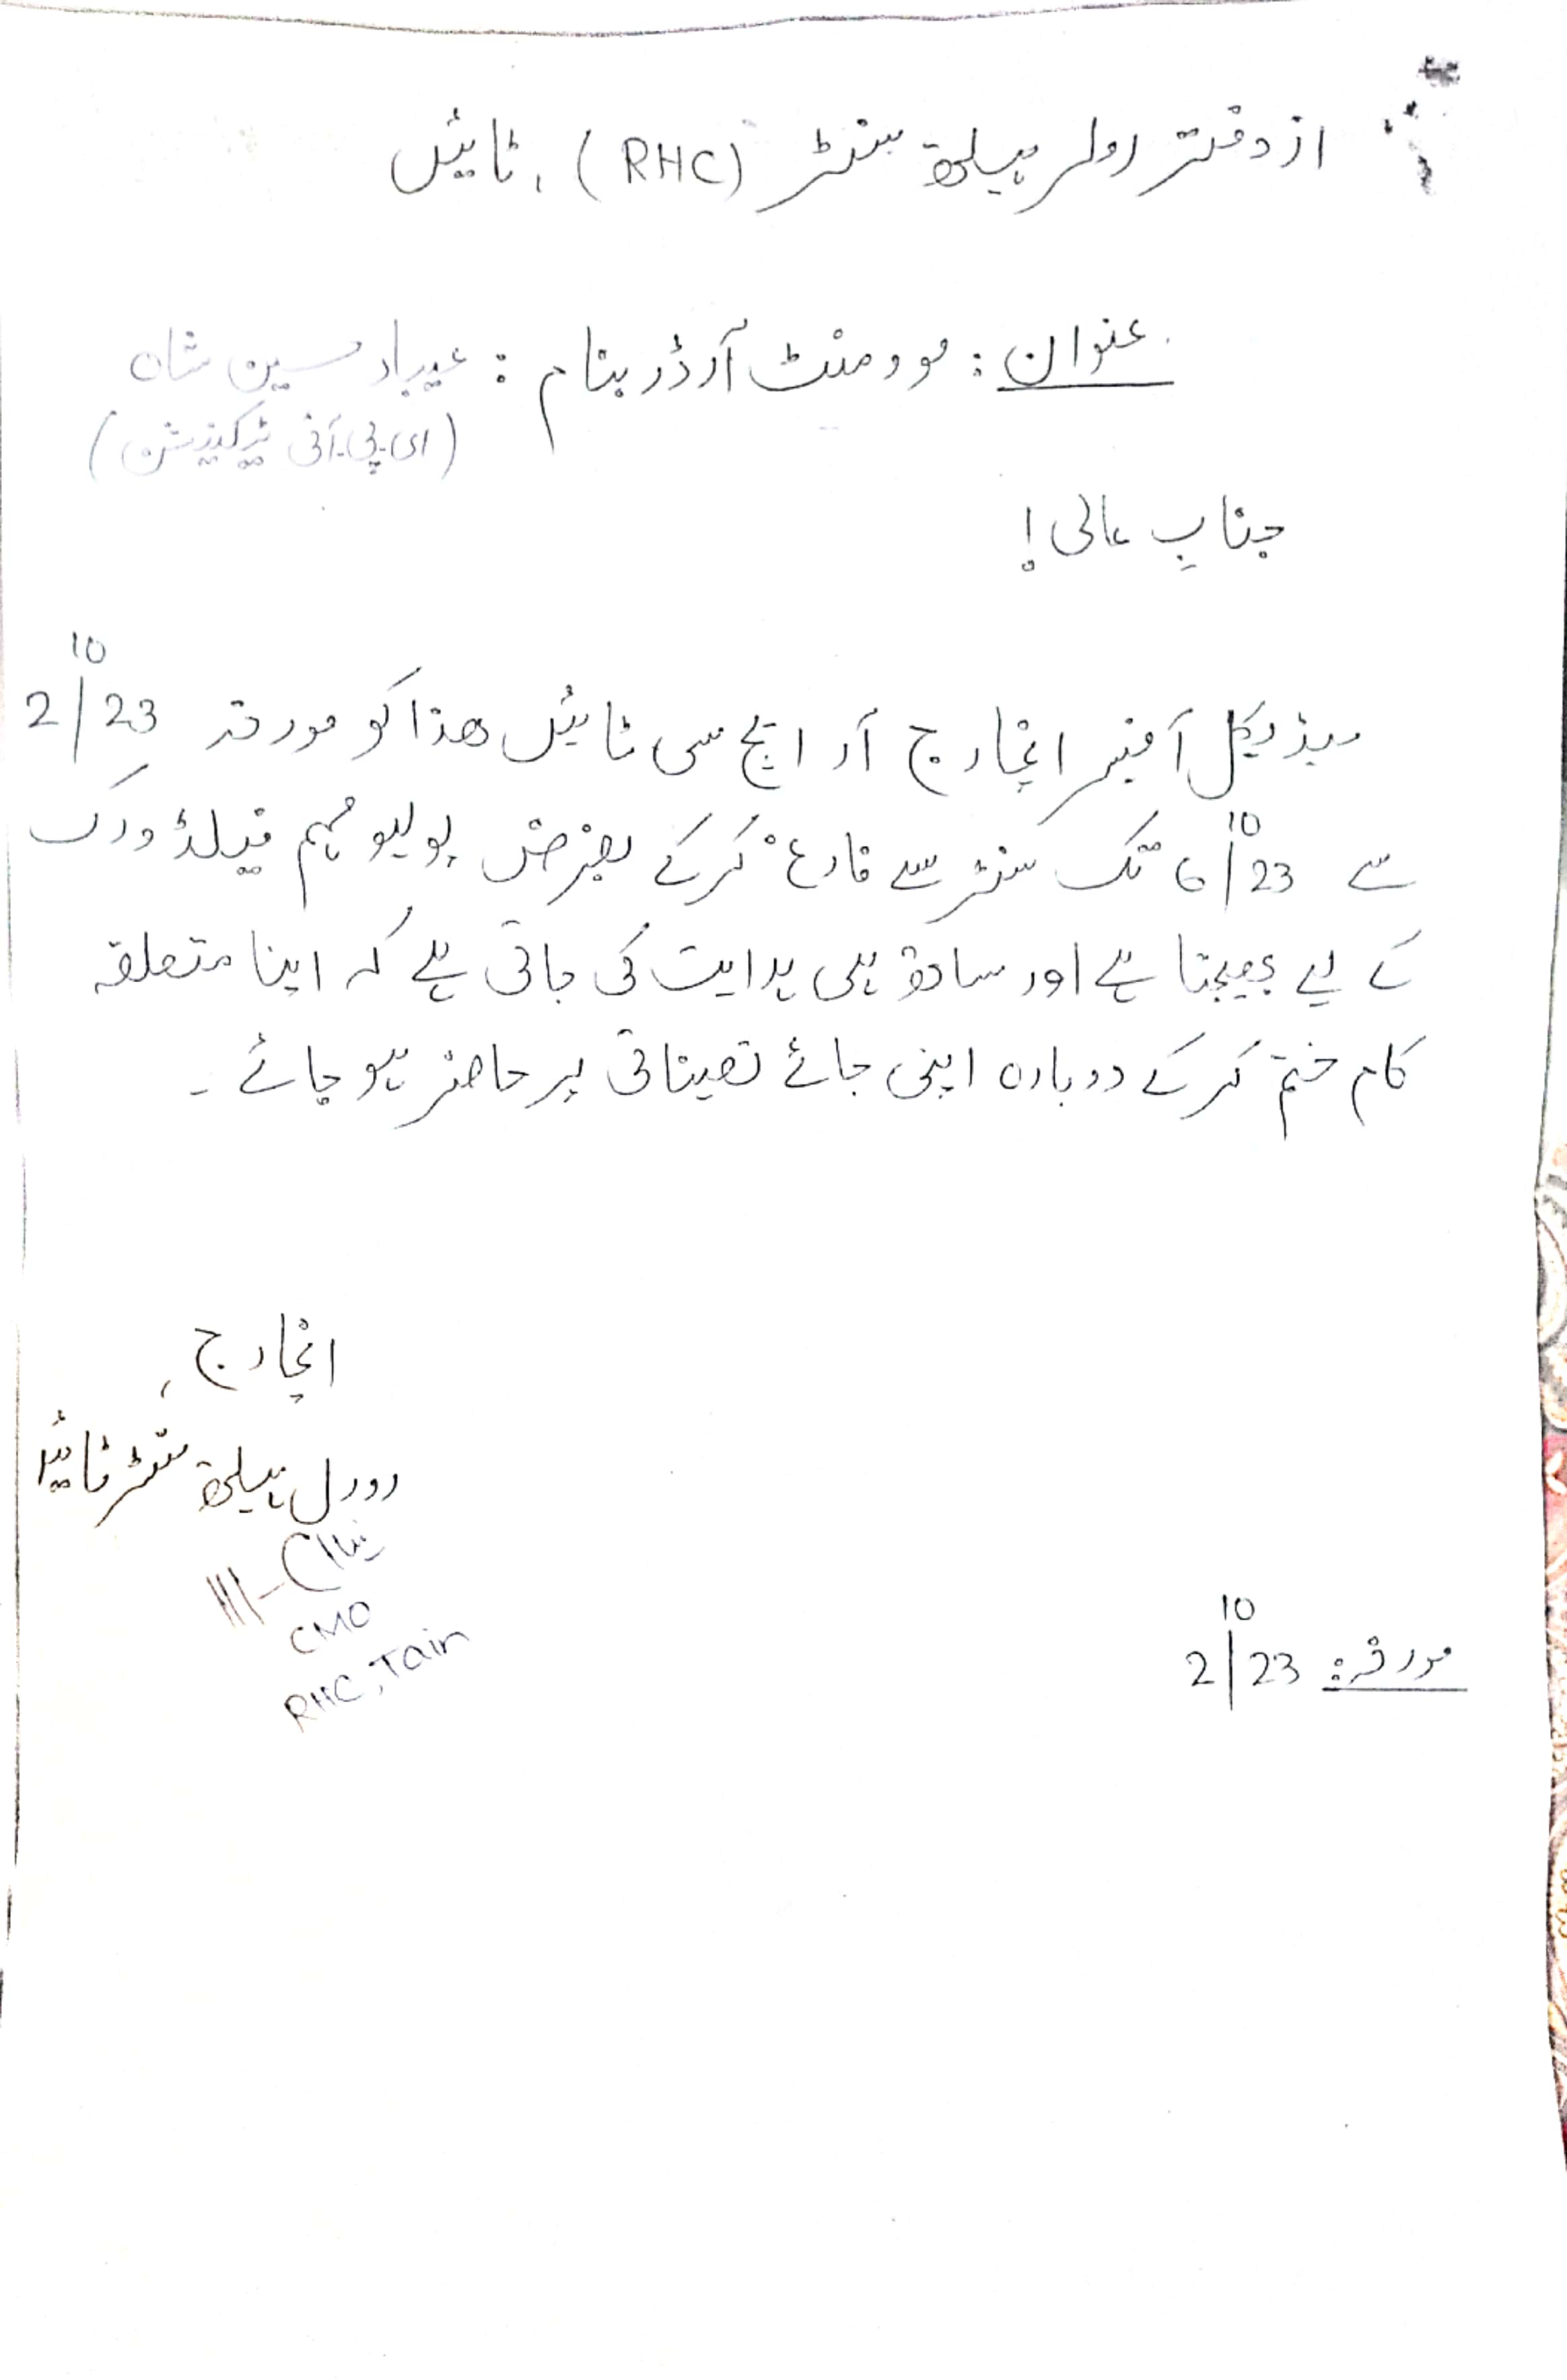 از دفتر رولر ہیلتھ سنٹر (RHC)، ٹائیں
عنوان: موومنٹ آرڈر بنام: عیباد حسین شاہ
(ای.پی.آئی ٹیکنیشن)
جنابِ عالی!
میڈیکل آفیسر انچارج آر ایچ سی ٹائیں ھذا کو مورخہ 2/10/23
سے 6/10/23 تک سنٹر سے فارغ کرکے بغرض پولیو مہم فیلڈ ورک
کے لیے بھیجتا ہے اور ساتھ ہی ہدایت کی جاتی ہے کہ اپنا متعلقہ
کام ختم کرکے دوبارہ اپنی جائے تعیناتی پر حاضر ہو جائے۔
انچارج،
رورل ہیلتھ سنٹر ٹائیں
CMO
RHC, Tain
مورخہ: 2/10/23